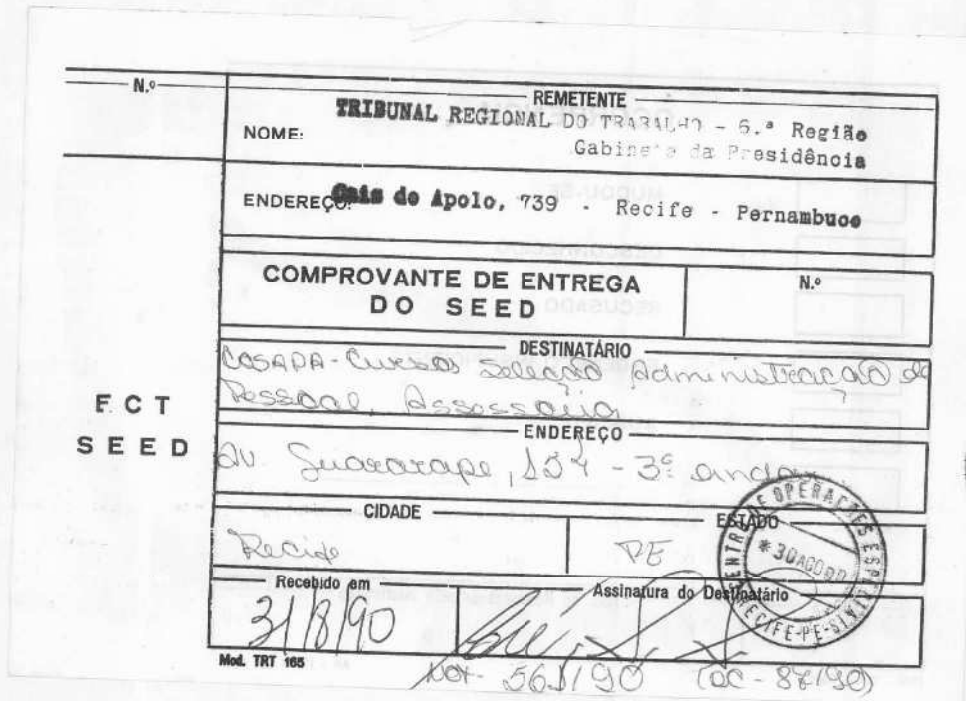 N.º
REMETENTE
NOME: TRIBUNAL REGIONAL DO TRABALHO - 6.ª Região
Gabinete da Presidência
ENDEREÇO: Cais do Apolo, 739 - Recife - Pernambuco
COMPROVANTE DE ENTREGA
DO SEED
N.º
DESTINATÁRIO
COSAPA - Cursos Seleção Administração de
Pessoal, Assessoria
ECT
SEED
ENDEREÇO
Av. Guararape, 154 - 3º andar
CIDADE
Recife
ESTADO
PE
CENTRO DE OPERAÇÕES ESPECIAIS
* 30 AGO 90
RECIFE-PE
Recebido em
31/8/90
Assinatura do Destinatário
Mod. TRT 165
Not- 561/90 (DC - 87/90)